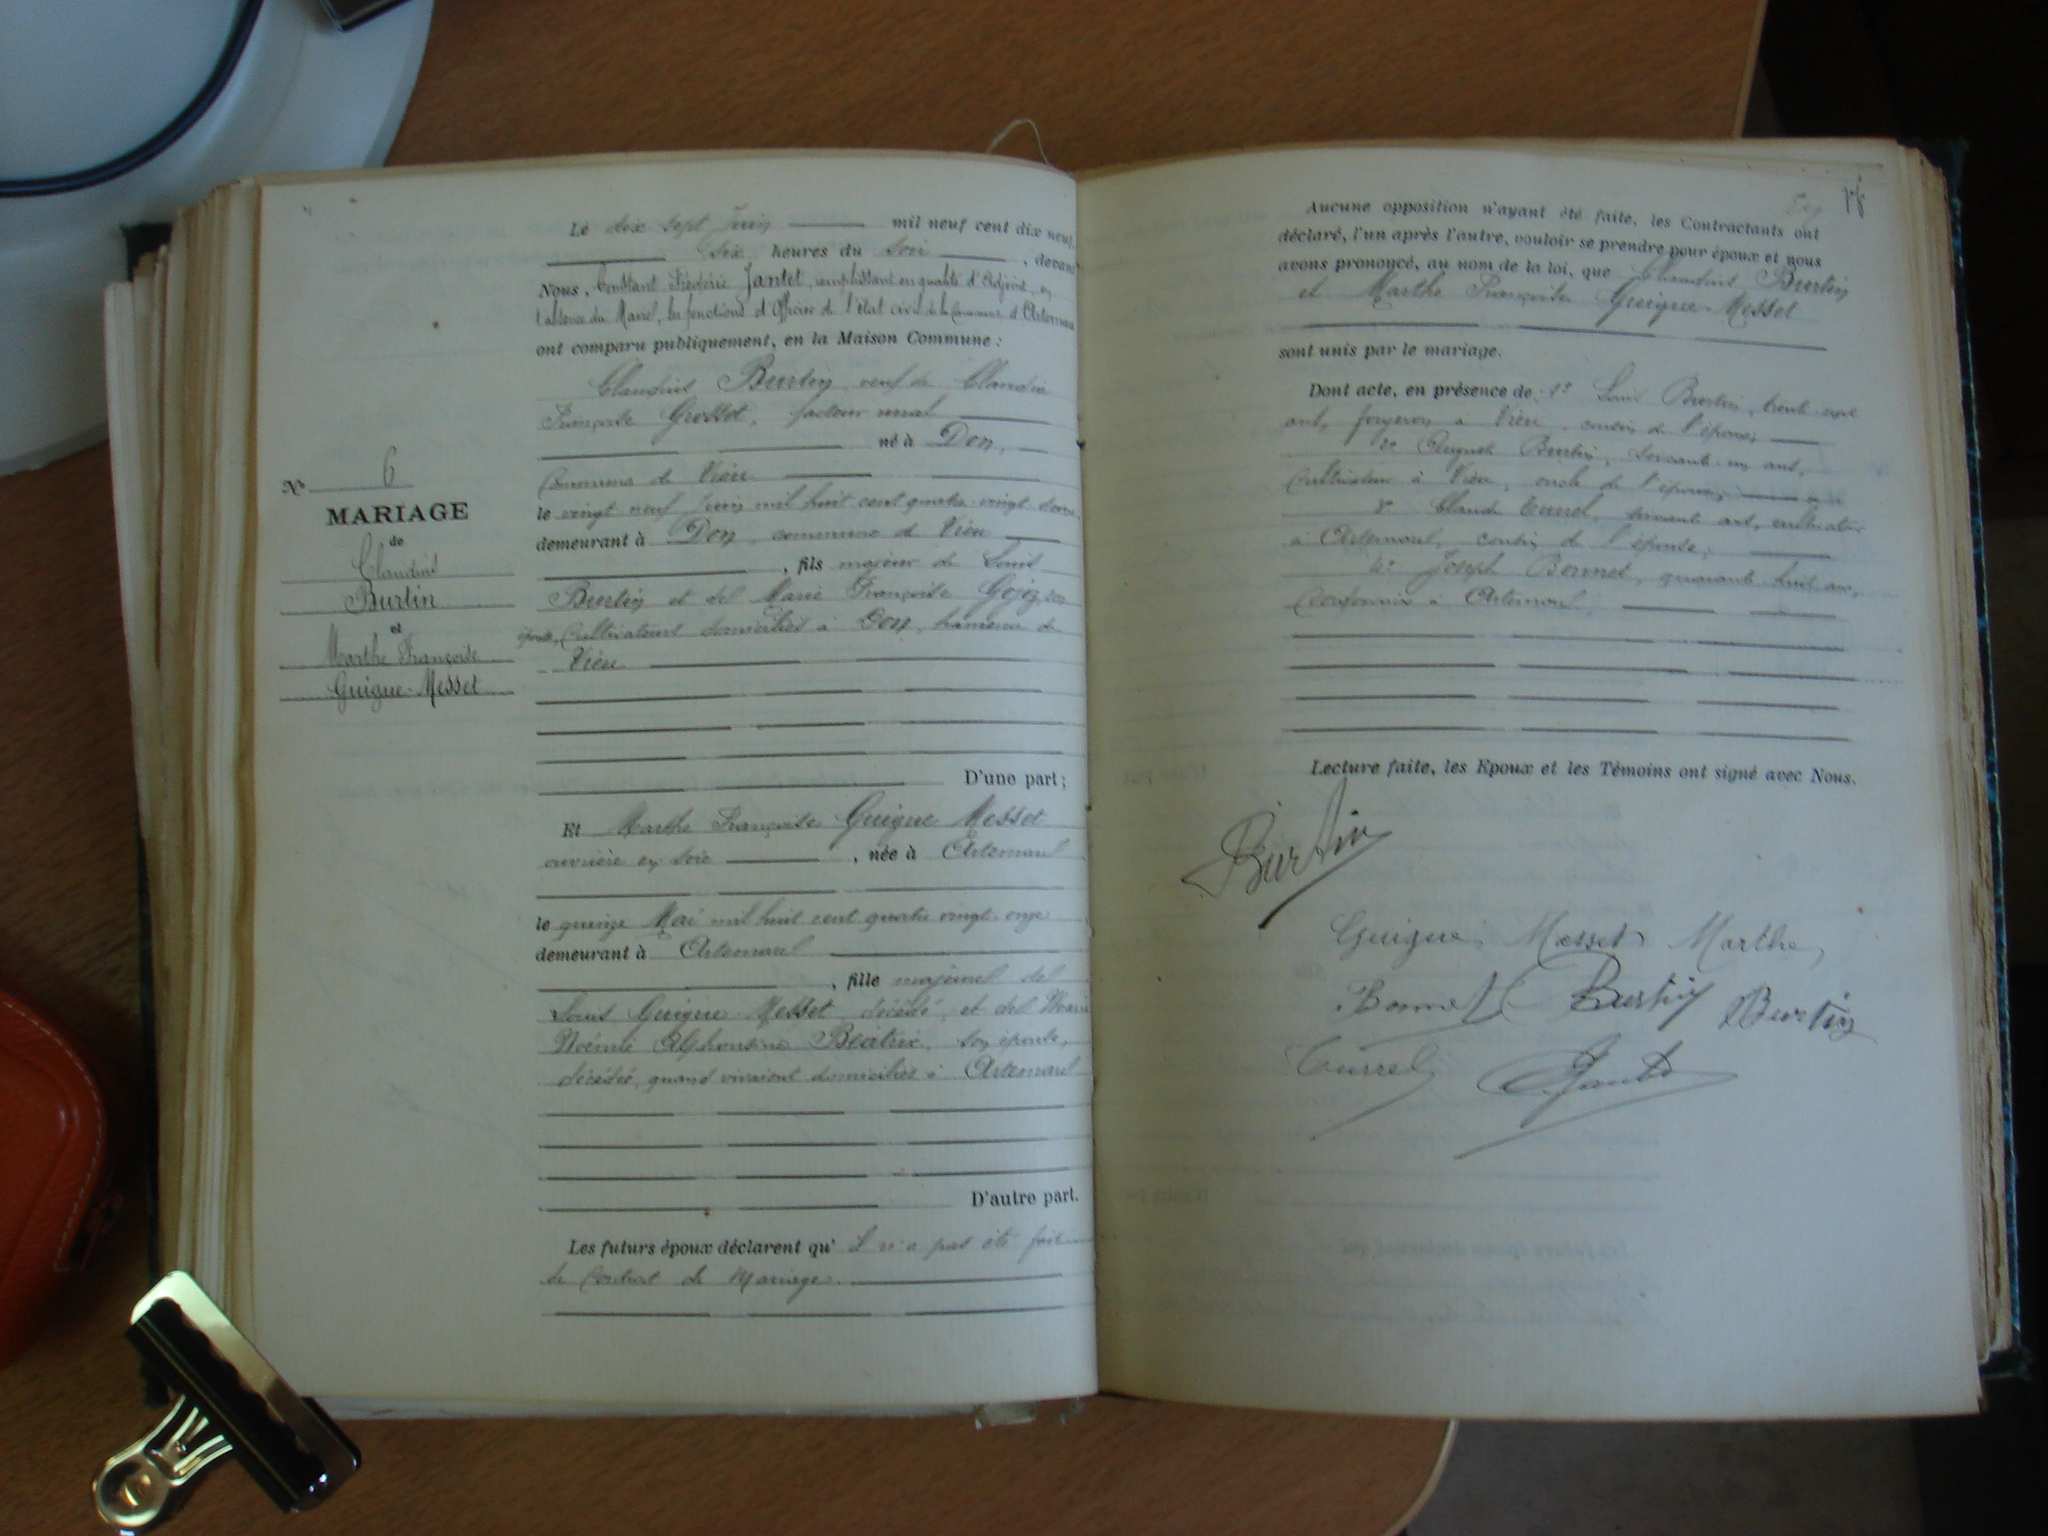 N° 6
MARIAGE
de
Claudius
Burtin
et
Marthe Françoise
Guigue-Messet
Le dix sept juin mil neuf cent dix neuf,
six heures du soir, devant
Nous, Constant Frédéric Jantet, remplissant en qualité d'Adjoint, en
l'absence du Maire, les fonctions d'Officier de l'état civil de la Commune d'Artemare
ont comparu publiquement, en la Maison Commune :
Claudius Burtin veuf de Claudia
Françoise Grosset, facteur rural
né à Don,
commune de Vieu
le vingt neuf juin mil huit cent quatre-vingt
demeurant à Don, commune de Vieu
, fils majeur de Louis
Burtin et de Marie Françoise Gojoz son
épouse, cultivateurs domiciliés à Don, hameau de
Vieu
D'une part ;
Et Marthe Françoise Guigue Messet
ouvrière en soie, née à Artemare
le quinze Mai mil huit cent quatre vingt onze
demeurant à Artemare
, fille majeure de
Louis Guigue-Messet, décédé, et de Marie
Noémie Alphonsine Béatrix, son épouse,
décédée, quand vivaient domiciliés à Artemare
D'autre part.
Les futurs époux déclarent qu'il n'a pas été fait
de Contrat de Mariage.
Aucune opposition n'ayant été faite, les Contractants ont
déclaré, l'un après l'autre, vouloir se prendre pour époux et nous
avons prononcé, au nom de la loi, que Claudius Burtin
et Marthe Françoise Guigue-Messet
sont unis par le mariage.
Dont acte, en présence de 1° Louis Burtin, trente sept
ans, forgeron à Vieu, cousin de l'époux;
2° August Burtin, soixante un ans,
cultivateur à Vieu, oncle de l'époux;
3° Claude Turrel, ans, cultivateur
à Artemare, cousin de l'épouse;
4° Joseph Bonnet, quarante huit ans,
à Artemare,
Lecture faite, les Epoux et les Témoins ont signé avec Nous.
Burtin
Guigue Messet Marthe
Bonnet Burtin Burtin
Turrel Jantet